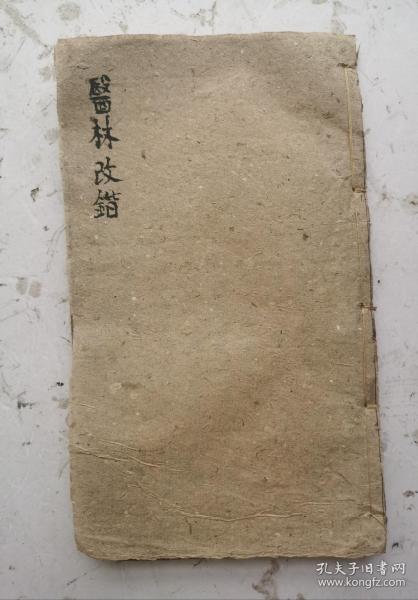 醫林改錯
孔夫子旧书网
www.kongfz.com